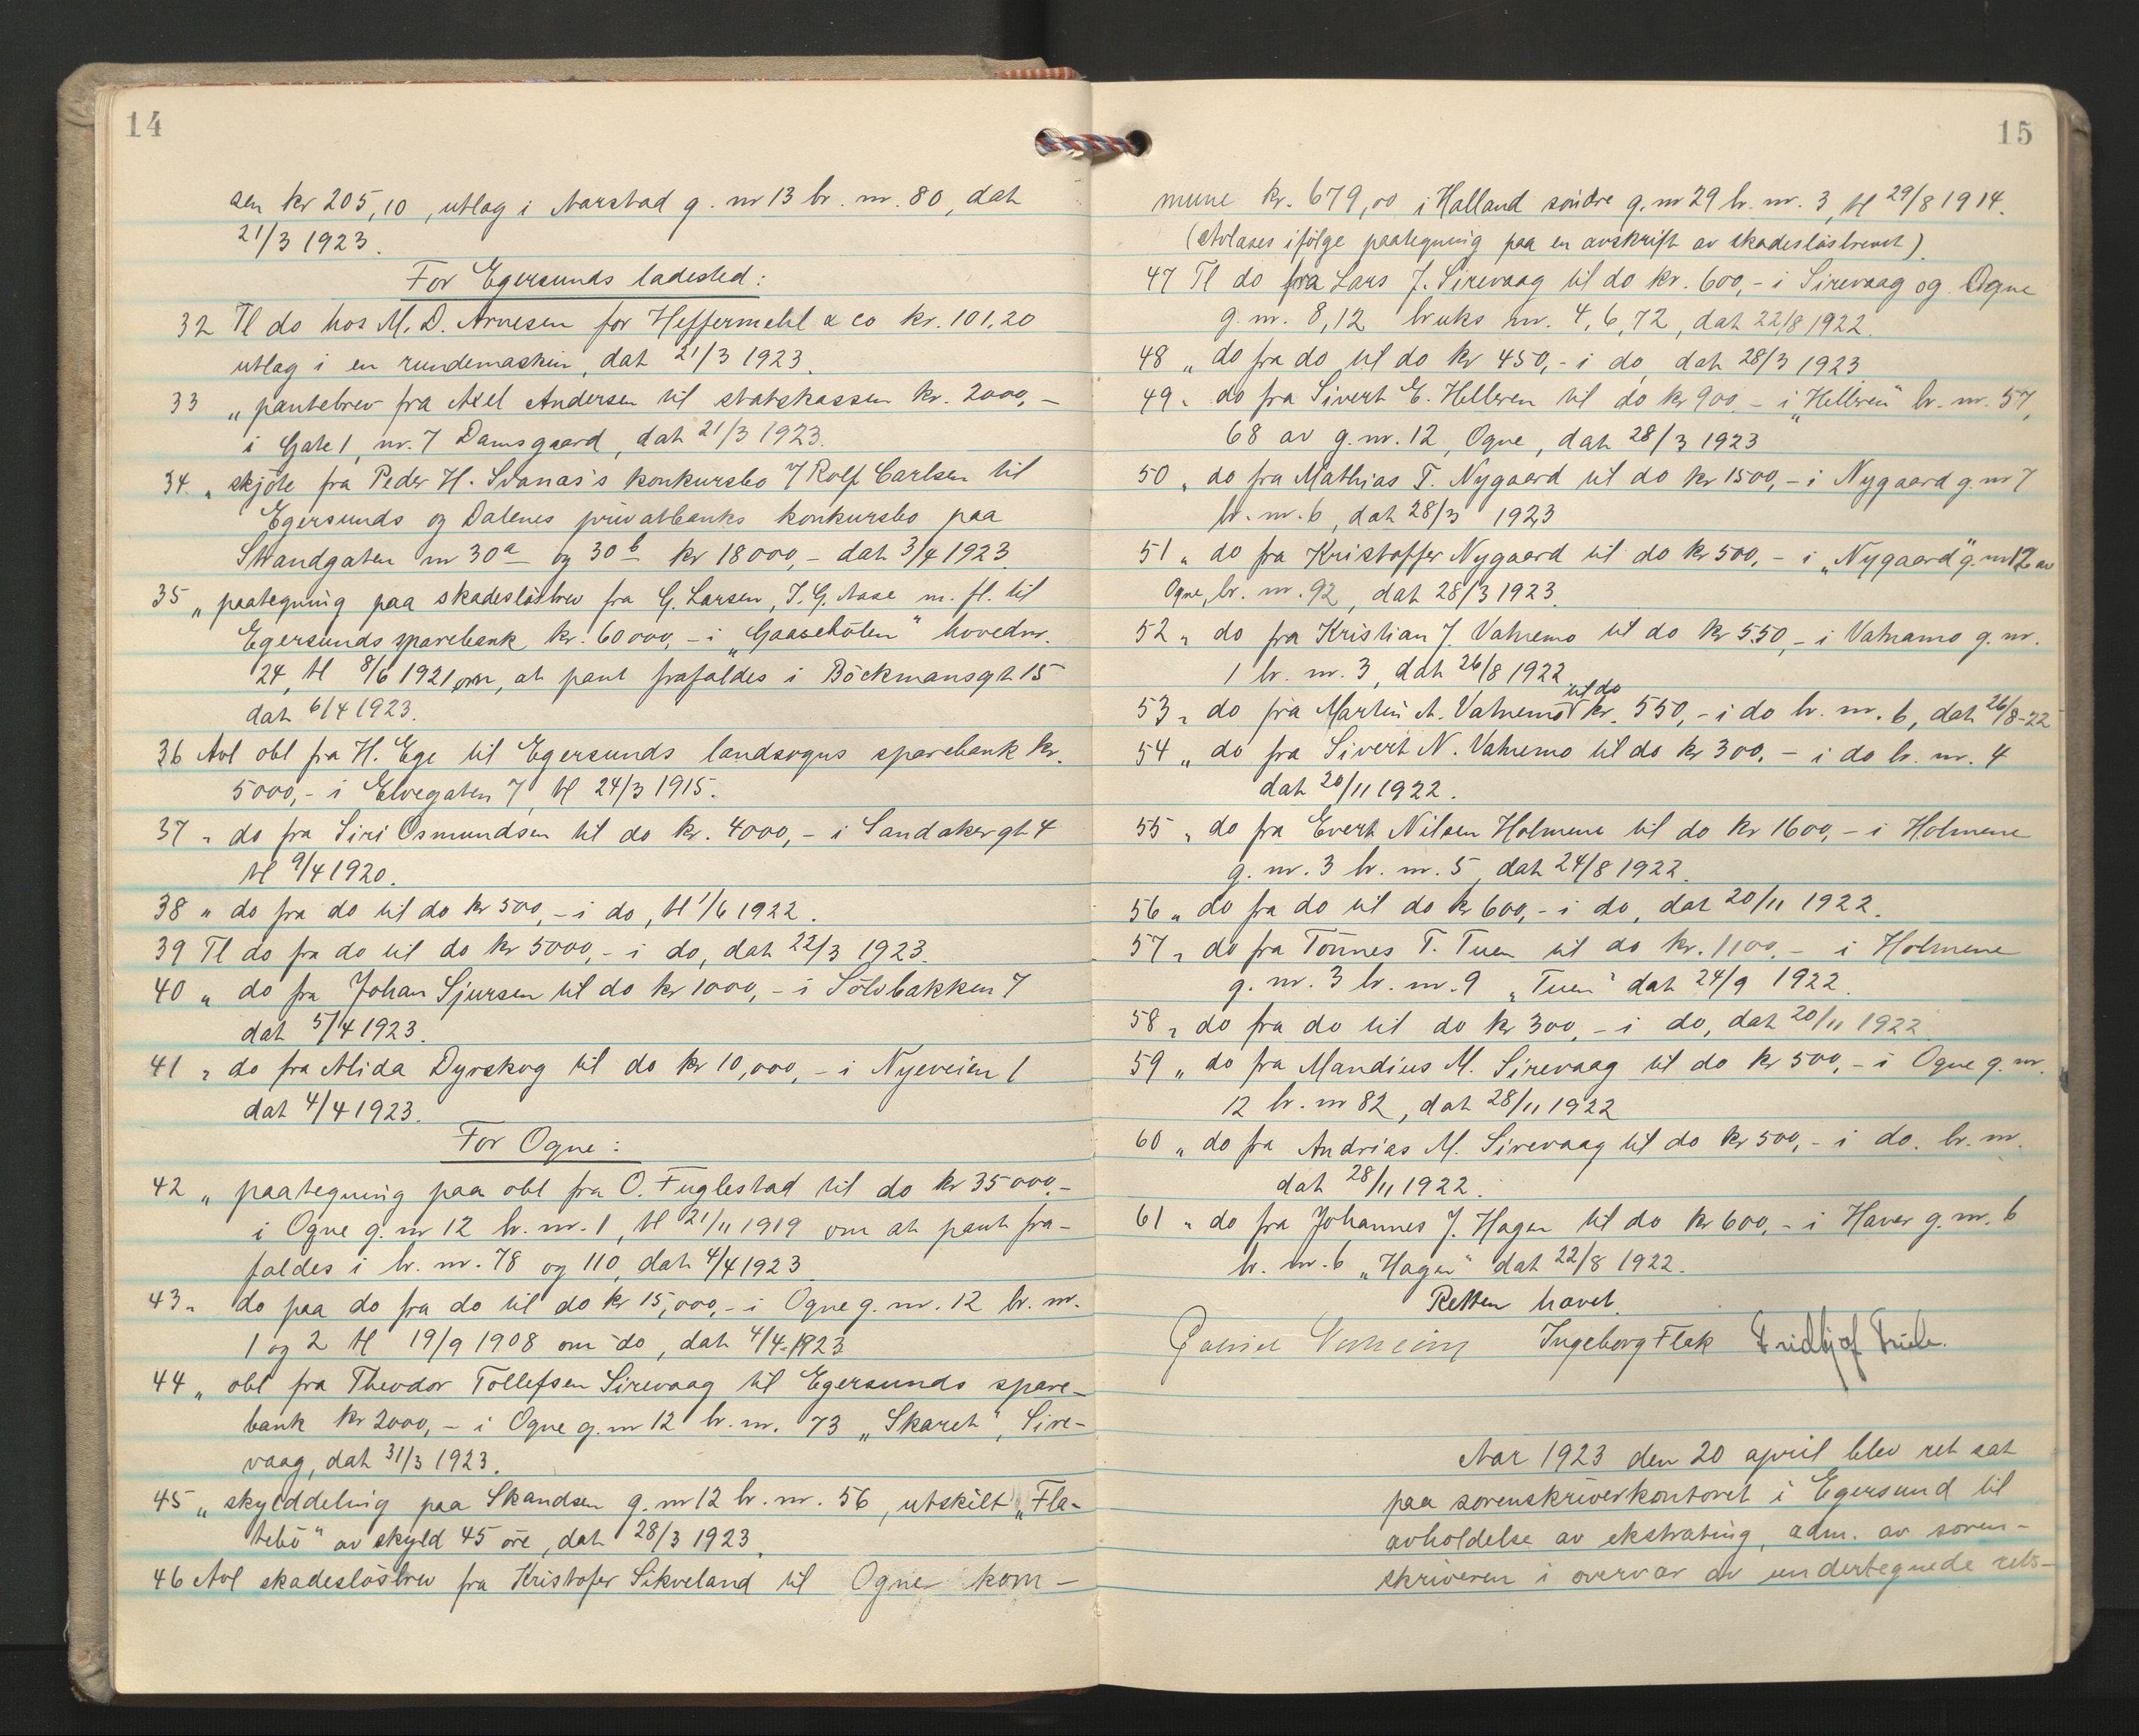 14
sen kr 205,10, utlag i Aarstad g. nr 13 br. nr. 80, dat
21/3 1923.
For Egersunds ladested:
32 Tl do hos M. D. Arnesen for Heffermehl & co kr. 101,20
utlag i en rundemaskin, dat 21/3 1923.
33 „ pantebrev fra Axel Andersen til statskassen kr. 2000,-
i Gate 1, nr. 7 Damsgaard, dat 21/3 1923.
34 „ skjöte fra Peder H. Svanæs's konkursbo v/ Rolf Carlsen til
Egersunds og Dalenes privatbanks konkursbo paa
Strandgaten nr 30a og 30b kr 18000,- dat 3/4 1923.
35 „ paategning paa skadeslösbrev fra G. Larsen, T. G. Aase m. fl. til
Egersunds sparebank kr. 60000,- i „Gaasehólen" hovednr.
24, tl 8/6 1921 om, at pant frafaldes i Böckmansgt 15
dat 6/4 1923.
36 Avl obl fra H. Ege til Egersunds landsogns sparebank kr.
5000,- i Elvegaten 7, tl 24/3 1915.
37 „ do fra Siri Osmundsen til do kr. 4000,- i Sandakergt 4
tl 9/4 1920.
38 „ do fra do til do kr 500,- i do, tl 1/6 1922.
39 Tl do fra do til do kr 5000,- i do, dat 22/3 1923.
40 „ do fra Johan Sjursen til do kr 1000,- i Sölvbakken 7
dat 5/4 1923.
41 „ do fra Alida Dyrskog til do kr 10,000,- i Nyeveien 1
dat 4/4 1923.
For Ogne:
42 „ paategning paa obl fra O. Fuglestad til do kr 35000,-
i Ogne g. nr 12 br. nr. 1, tl 21/11 1919 om at pant fra-
faldes i br. nr. 78 og 110, dat 4/4 1923.
43 „ do paa do fra do til do kr 15,000,- i Ogne g. nr. 12 br. nr.
1 og 2 tl 19/9 1908 om do, dat 4/4 1923
44 „ obl fra Theodor Tollefsen Sirevaag til Egersunds spare-
bank kr 2000,- i Ogne g. nr 12 br. nr. 73 „Skaret", Sire-
vaag, dat 31/3 1923.
45 „ skylddeling paa Skandsen g. nr 12 br. nr. 56, utskilt „Fla-
tebö" av skyld 45 öre, dat 28/3 1923.
46 Avl skadeslösbrev fra Kristofer Sikveland til Ogne kom-
15
mune kr. 679,00 i Halland söndre g. nr 29 br. nr. 3, tl 29/8 1914.
(Avlases ifölge paategning paa en avskrift av skadeslösbrevet).
47 Tl do fra Lars J. Sirevaag til do kr. 600,- i Sirevaag og Ogne
g. nr. 8,12 bruks nr. 4, 6, 72, dat 22/8 1922.
48 „ do fra do til do kr 450,- i do, dat 28/3 1923
49 „ do fra Sivert E. Hellvren til do kr 900,- i „Hellvren" br. nr. 57,
68 av g. nr. 12, Ogne, dat 28/3 1923
50 „ do fra Mathias T. Nygaard til do kr 1500,- i Nygaard g. nr 7
br. nr. 6, dat 28/3 1923
51 „ do fra Kristoffer Nygaard til do kr 500,- i „Nygaard" g. nr 12 av
Ogne, br. nr. 92, dat 28/3 1923.
52 „ do fra Kristian J. Vatnemo til do kr 550,- i Vatnamo g. nr.
1 br. nr. 3, dat 26/8 1922
53 „ do fra Martin A. Vatnemo til do kr. 550,- i do br. nr. 6, dat 26/8-22
54 „ do fra Sivert N. Vatnemo til do kr 300,- i do br. nr. 4
dat 20/11 1922.
55 „ do fra Evert Nilsen Holmene til do kr 1600,- i Holmene
g. nr. 3 br. nr. 5, dat 24/8 1922.
56 „ do fra do til do kr 600,- i do, dat 20/11 1922.
57 „ do fra Tönnes T. Tuen til do kr. 1100,- i Holmene
g. nr. 3 br. nr. 9 „Tuen" dat 24/9 1922.
58 „ do fra do til do kr 300,- i do, dat 20/11 1922
59 „ do fra Mandius M. Sirevaag til do kr 500,- i Ogne g. nr.
12 br. nr 82, dat 28/11 1922
60 „ do fra Andrias M. Sirevaag til do kr 500,- i do. br. nr.
dat 28/11 1922.
61 „ do fra Johannes J. Hagen til do kr 600,- i Haver g. nr. 6
br. nr. 6 „Hagen" dat 22/8 1922.
Retten hævet.
Ingeborg Flak Fridtjof
Aar 1923 den 20 april blev ret sat
paa sorenskriverkontoret i Egersund til
avholdelse av ekstrating, adm. av soren-
skriveren i overvær av undertegnede rets-